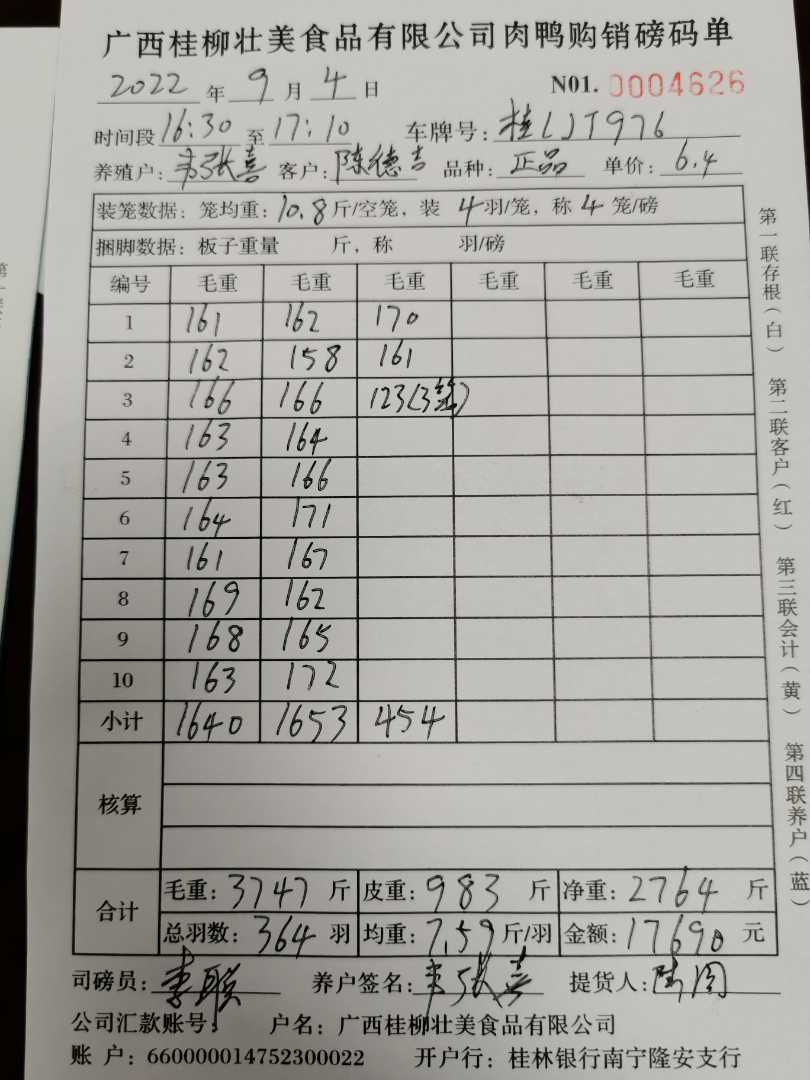 广西桂柳壮美食品有限公司肉鸭购销磅码单
2022 年 9 月 4 日 N01. 0004626
时间段 16:30 至 17:10 车牌号: 桂LJT976
养殖户: 韦张喜 客户: 陈德吉 品种: 正品 单价: 6.4
装笼数据: 笼均重: 10.8 斤/空笼, 装 4 羽/笼, 称 4 笼/磅
捆脚数据: 板子重量 斤, 称 羽/磅
编号 毛重 毛重 毛重 毛重 毛重 毛重
1 161 162 170
2 162 158 161
3 166 166 123(3笼)
4 163 164
5 163 166
6 164 171
7 161 167
8 169 162
9 168 165
10 163 172
小计 1640 1653 454
核算
合计 毛重: 3747 斤 皮重: 983 斤 净重: 2764 斤
总羽数: 364 羽 均重: 7.59 斤/羽 金额: 17690 元
司磅员: 养户签名: 韦张喜 提货人:
公司汇款账号: 户名: 广西桂柳壮美食品有限公司
账 户: 660000014752300022 开户行: 桂林银行南宁隆安支行
第一联存根(白) 第二联客户(红) 第三联会计(黄) 第四联养户(蓝)